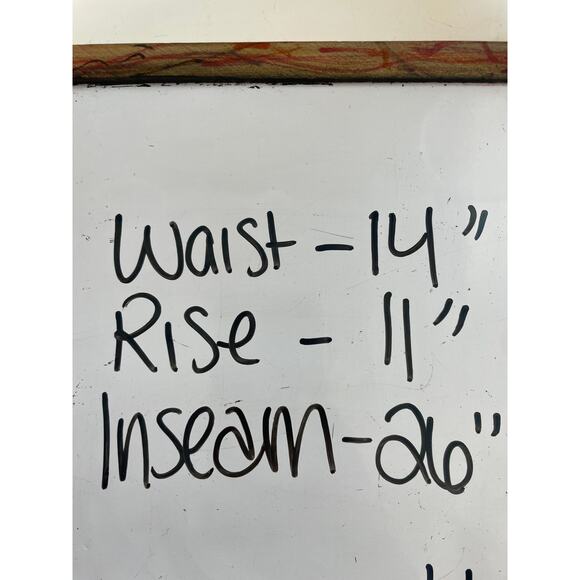 Waist - 14"
Rise - 11"
Inseam - 26"